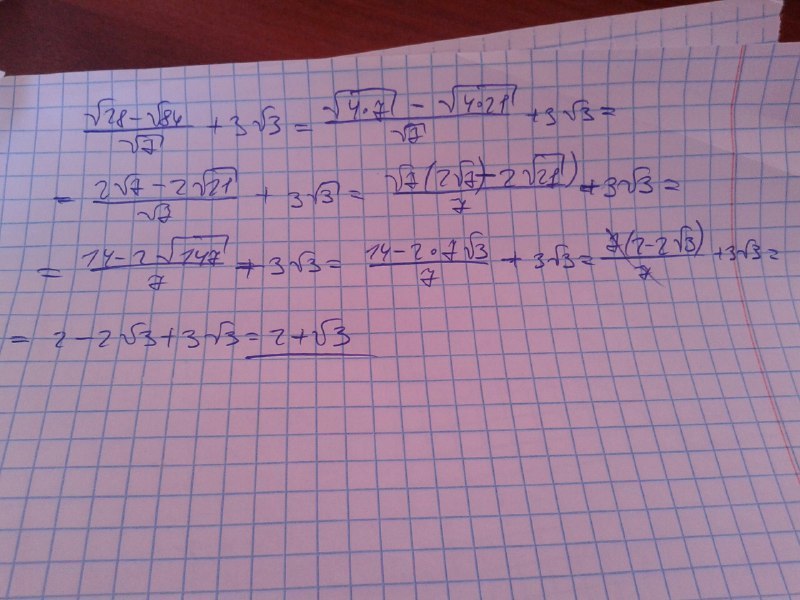 (√28 − √84)/√7 + 3√3 = (√(4·7) − √(4·21))/√7 + 3√3 =
= (2√7 − 2√21)/√7 + 3√3 = √7(2√7 − 2√21)/7 + 3√3 =
= (14 − 2√147)/7 + 3√3 = (14 − 2·7√3)/7 + 3√3 = 7(2 − 2√3)/7 + 3√3 =
= 2 − 2√3 + 3√3 = 2 + √3